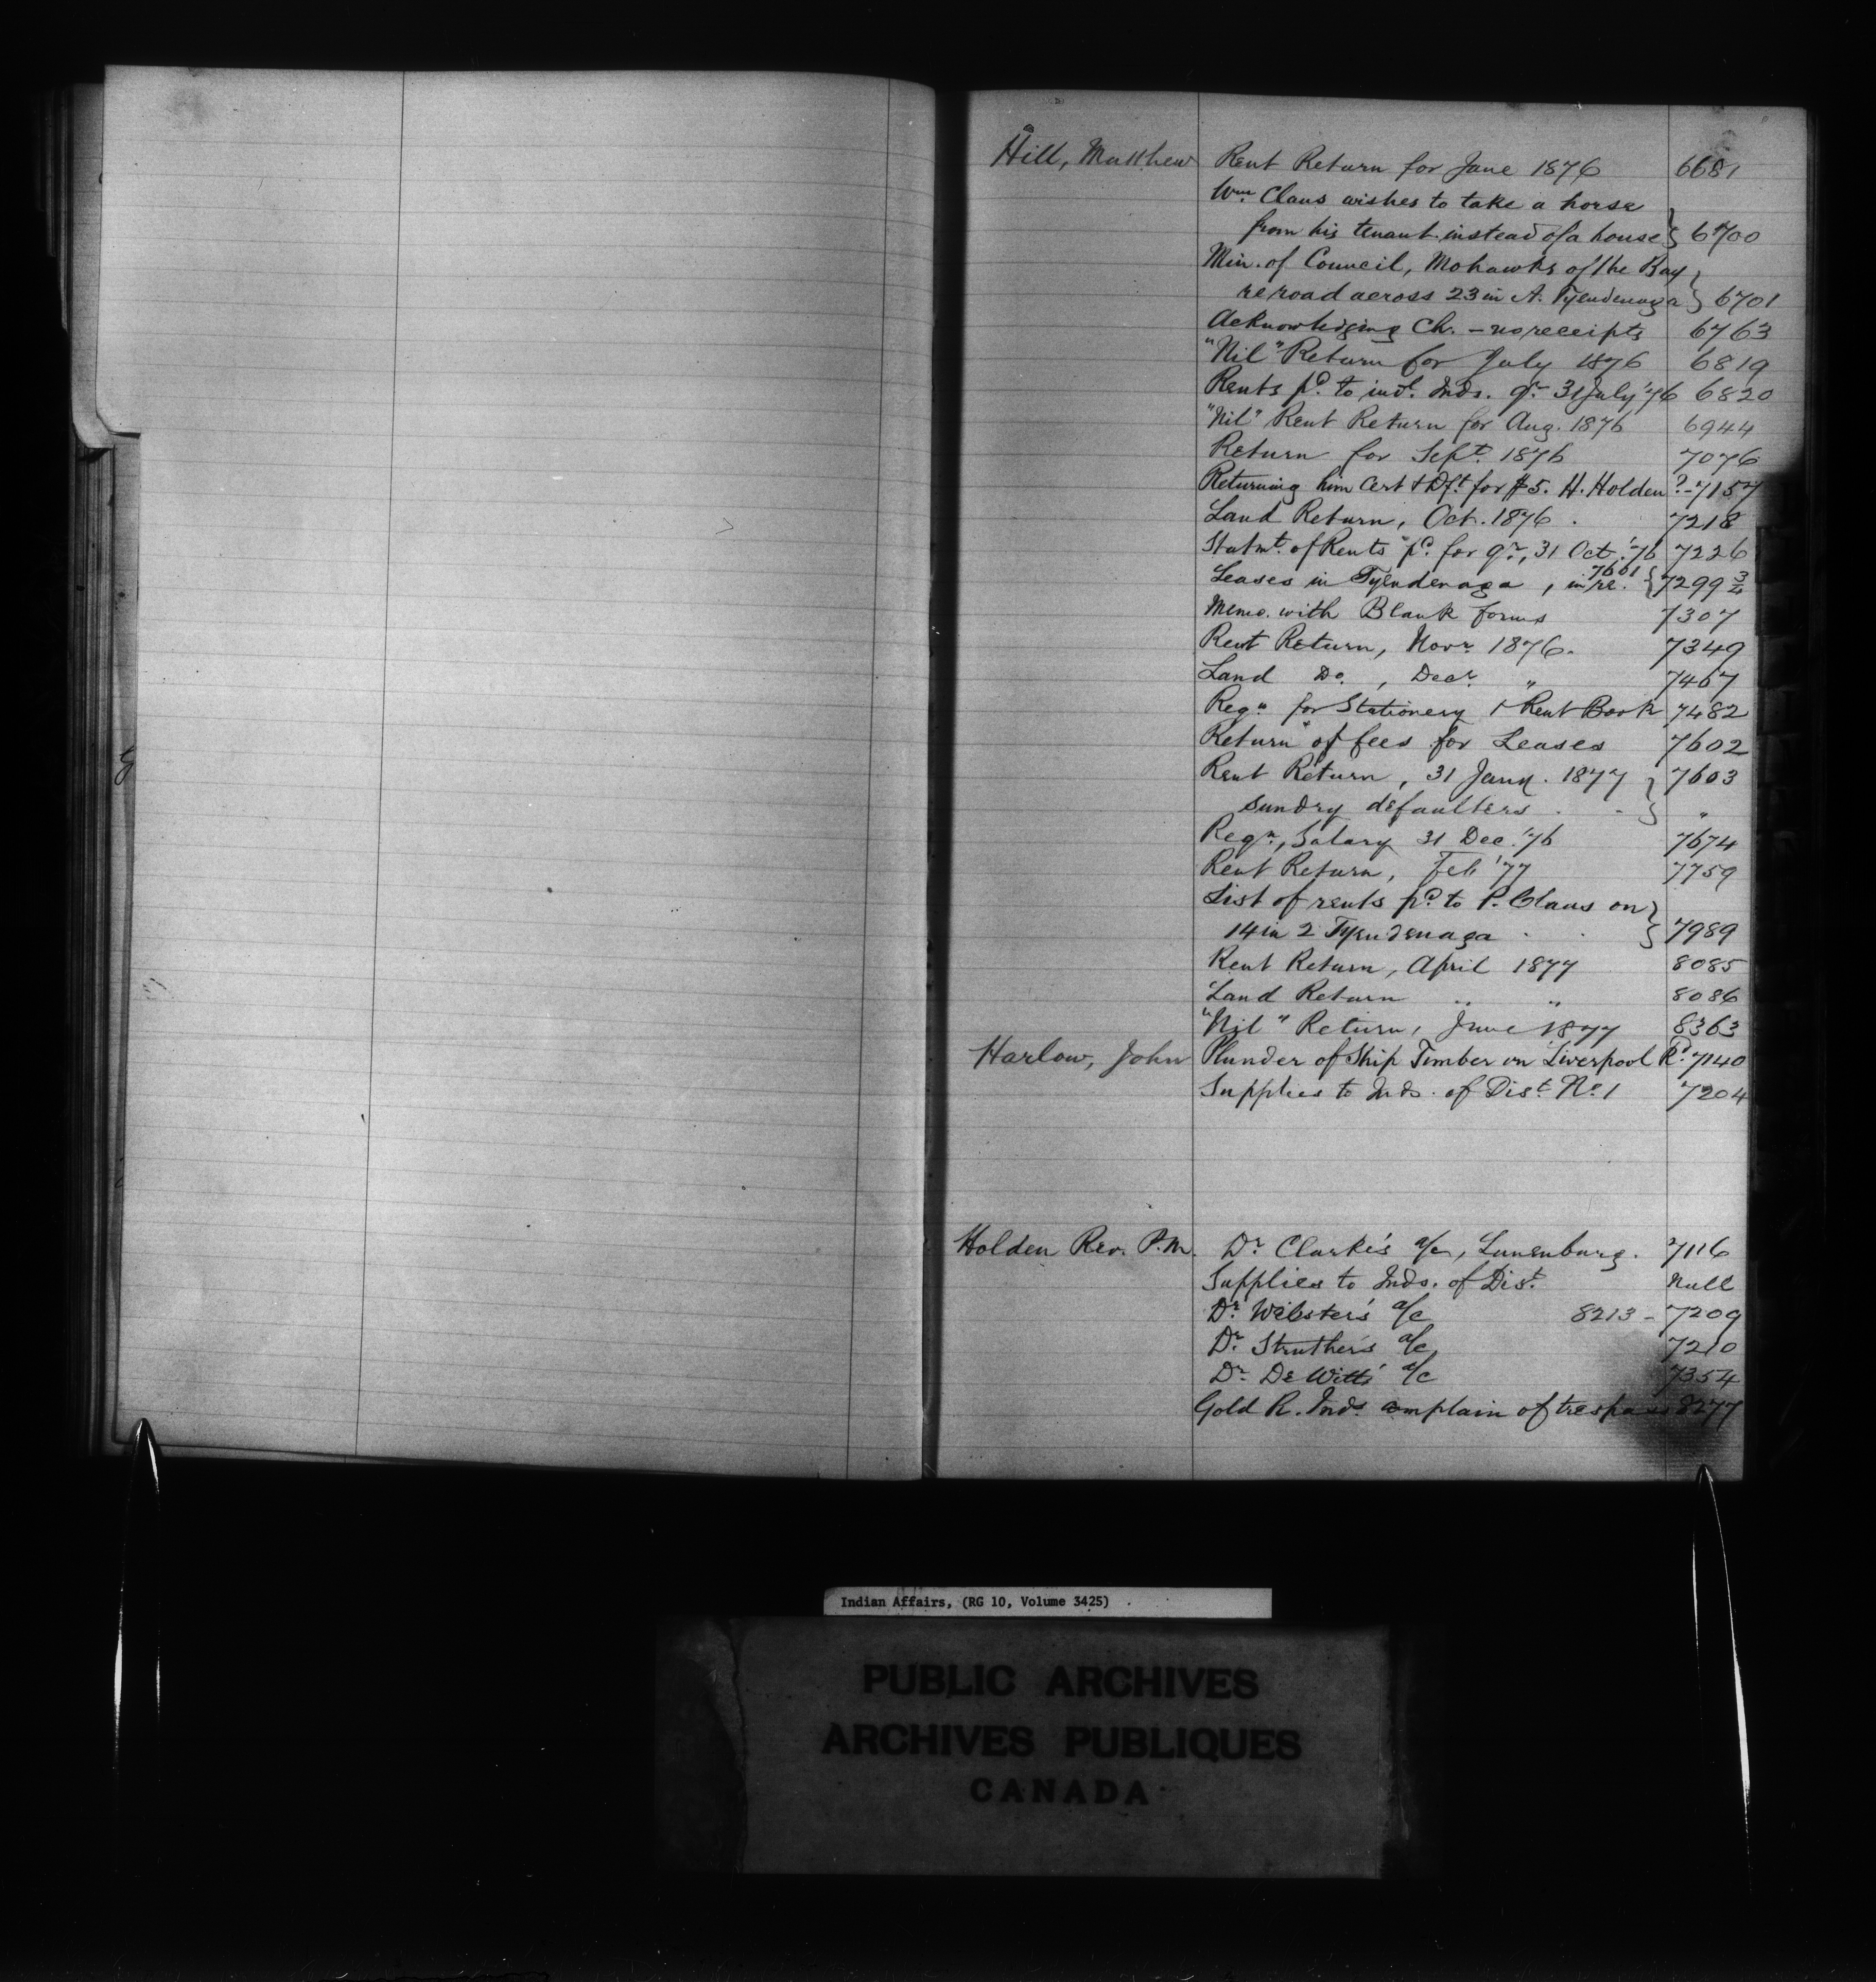 Hill, Matthew Rent Return for June 1876 6681
Wm. Claus wishes to take a horse
from his tenant instead of a house } 6700
Min. of Council, Mohawks of the Bay
re road across 23 in A. Tyendenaga } 6701
Acknowledging Ch. - no receipts 6763
"Nil" Return for July 1876 6819
Rents pd. to indl. Inds. qr. 31 July '76 6820
"Nil" Rent Return for Aug. 1876 6944
Return for Sept. 1876 7076
Returning him Cert & Dft. for $5. H. Holden ? - 7157
Land Return, Oct. 1876 . 7218
Statmt. of Rents pd. for qr., 31 Oct. '76 7226
Leases in Tyendenaga, in re. 7601 { 7299 3/4
Memo. with Blank forms 7307
Rent Return, Novr. 1876. 7349
Land Do. , Decr. " 7467
Reqn. for Stationery 1 Rent Book 7482
Return of fees for Leases 7602
Rent Return, 31 Jany. 1877 } 7603
Sundry defaulters . - } "
Reqn., Salary 31 Dec. '76 7674
Rent Return, Feb '77 7759
List of rents pd. to P. Claus on
14 in 2 Tyendenaga . . } 7989
Rent Return, April 1877 8085
Land Return " " 8086
"Nil" Return, June 1877 8363
Harlow, John Plunder of Ship Timber on Liverpool Rd. 7140
Supplies to Inds. of Dist. No. 1 7204
Holden Rev. P.M. Dr. Clarke's a/c, Lunenburg. 7116
Supplies to Inds. of Dist. Null
Dr. Webster's a/c 8213 - 7209
Dr. Struther's a/c 7210
Dr. De Witt's a/c 7354
Gold R. Inds. complain of trespass 8277
Indian Affairs, (RG 10, Volume 3425)
PUBLIC ARCHIVES
ARCHIVES PUBLIQUES
CANADA